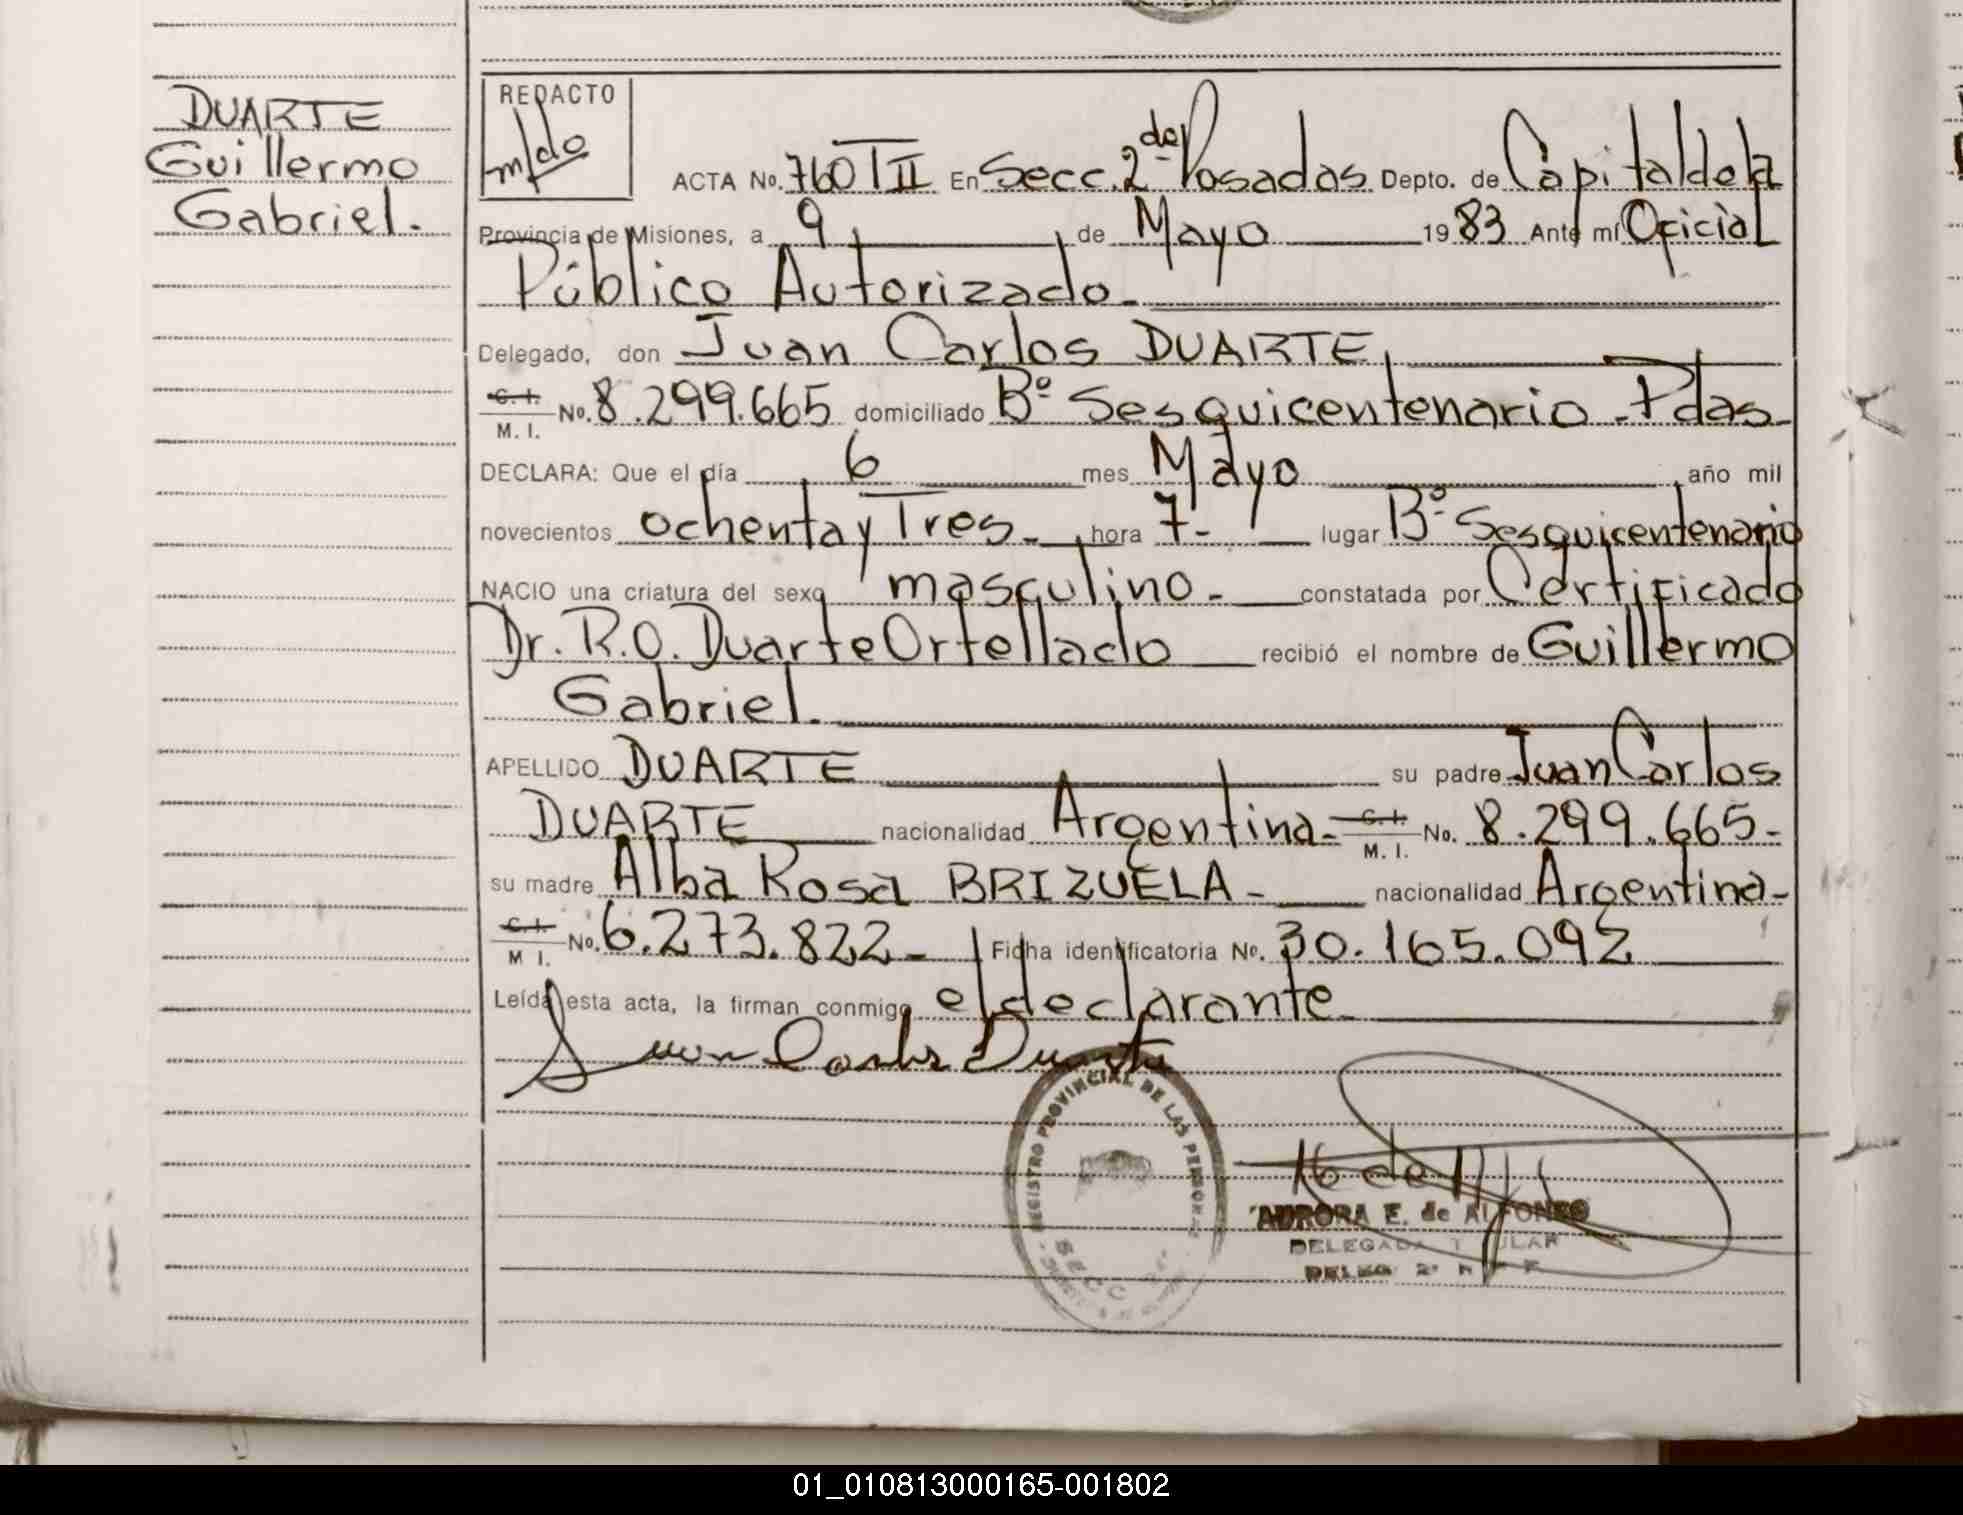 DUARTE
Guillermo
Gabriel.
REDACTO
ACTA No. 760 T II En Secc. 2da Posadas Depto. de Capital de la
Provincia de Misiones, a 9 de Mayo 1983 Ante mí Oficial
Público Autorizado.
Delegado, don Juan Carlos DUARTE,
C. I. M. I. No. 8.299.665 domiciliado Bº Sesquicentenario - Pdas.
DECLARA: Que el día 6 mes Mayo año mil
novecientos ochenta y Tres - hora 7- lugar Bº Sesquicentenario
NACIO una criatura del sexo masculino - constatada por Certificado
Dr. R.O. Duarte Ortellado recibió el nombre de Guillermo
Gabriel.
APELLIDO DUARTE su padre Juan Carlos
DUARTE nacionalidad Argentina - C. I. M. I. No. 8.299.665-
su madre Alba Rosa BRIZUELA - nacionalidad Argentina-
C. I. M I. No. 6.273.822- Ficha identificatoria No. 30.165.092
Leída esta acta, la firman conmigo el declarante.
Juan Carlos Duarte
REGISTRO PROVINCIAL DE LAS PERSONAS
SECC
AURORA E. de ALFONSO
DELEGADA TITULAR
DELEG 2ª
01_010813000165-001802